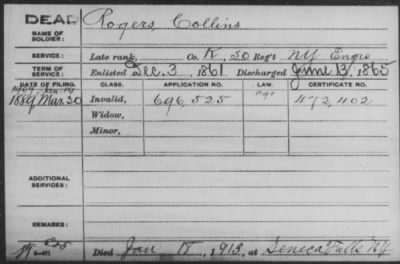 DEAD
NAME OF SOLDIER: Rogers, Collins
SERVICE: Late rank, Co. K, 50 Reg't NY Engrs
TERM OF SERVICE: Enlisted Dec. 3, 1861 Discharged June 13, 1865
DATE OF FILING. CLASS. APPLICATION NO. LAW. CERTIFICATE NO.
1889 Mar. 30 Invalid, 696,525 Age 472,402
Widow,
Minor,
ADDITIONAL SERVICES:
REMARKS:
Died Jan 1913, at Seneca Falls NY